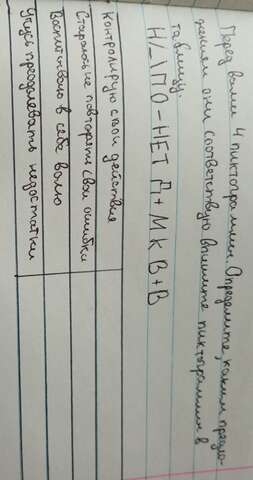 Перед вами 4 пиктограммы. Определите, каким предло-
жениям они соответствую впишите пиктограммы в
таблицу.
Н/-\ПО-НЕТ Д+МК В+В
Контролирую свои действия
Стараюсь не повторять свои ошибки
Воспитываю в себе волю
Учусь преодолевать недостатки